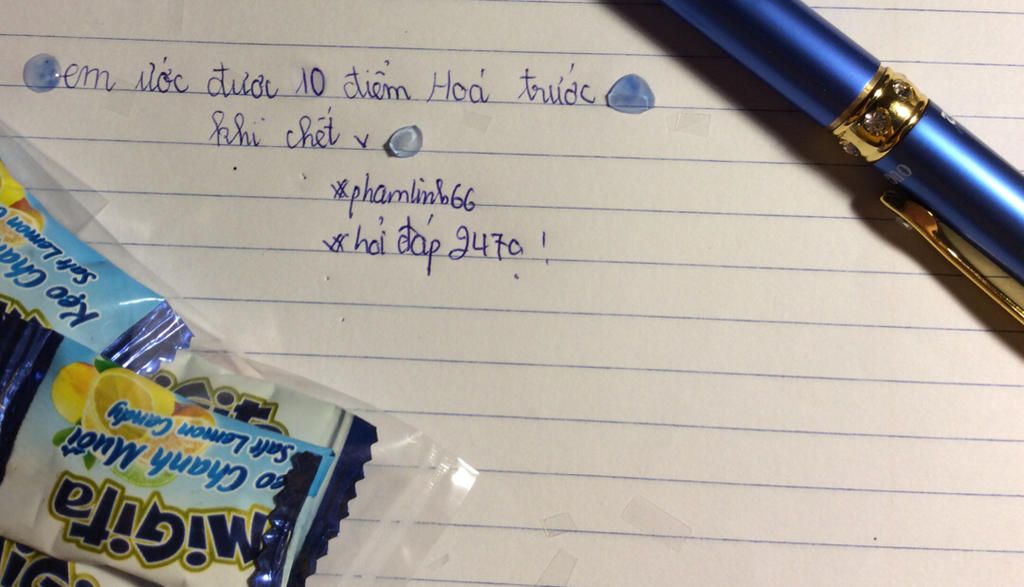 em ước được 10 điểm Hoá trước
khi chết v
*phamlinh66
*hỏi đáp 247ạ!
Kẹo Cha
Salt Lemon
Salt Lemon Candy
eo Chanh Muối
MiGita